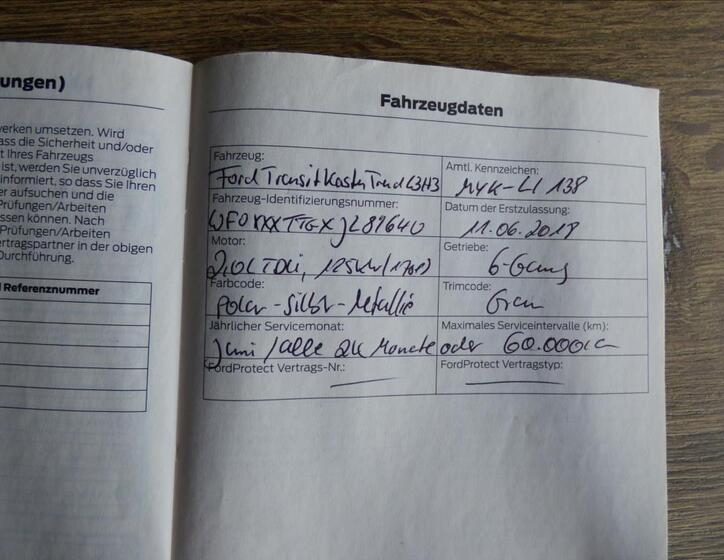 ungen)
werken umsetzen. Wird
ass die Sicherheit und/oder
t Ihres Fahrzeugs
ist, werden Sie unverzüglich
informiert, so dass Sie Ihren
er aufsuchen und die
Prüfungen/Arbeiten
ssen können. Nach
Prüfungen/Arbeiten
ertragspartner in der obigen
Durchführung.
Referenznummer
Fahrzeugdaten
Fahrzeug:
Ford Transit Kasten Trend L3H3
Amtl. Kennzeichen:
MYK-LI 138
Fahrzeug-Identifizierungsnummer:
WF0XXXTTGXJL89640
Datum der Erstzulassung:
11.06.2018
Motor:
2,0L TDCi, 125KW (170PS)
Getriebe:
6-Gang
Farbcode:
polar-silber-Metallic
Trimcode:
Jährlicher Servicemonat:
Juni / alle 24 Monate oder
Maximales Serviceintervalle (km):
60.000
FordProtect Vertrags-Nr.:
FordProtect Vertragstyp: